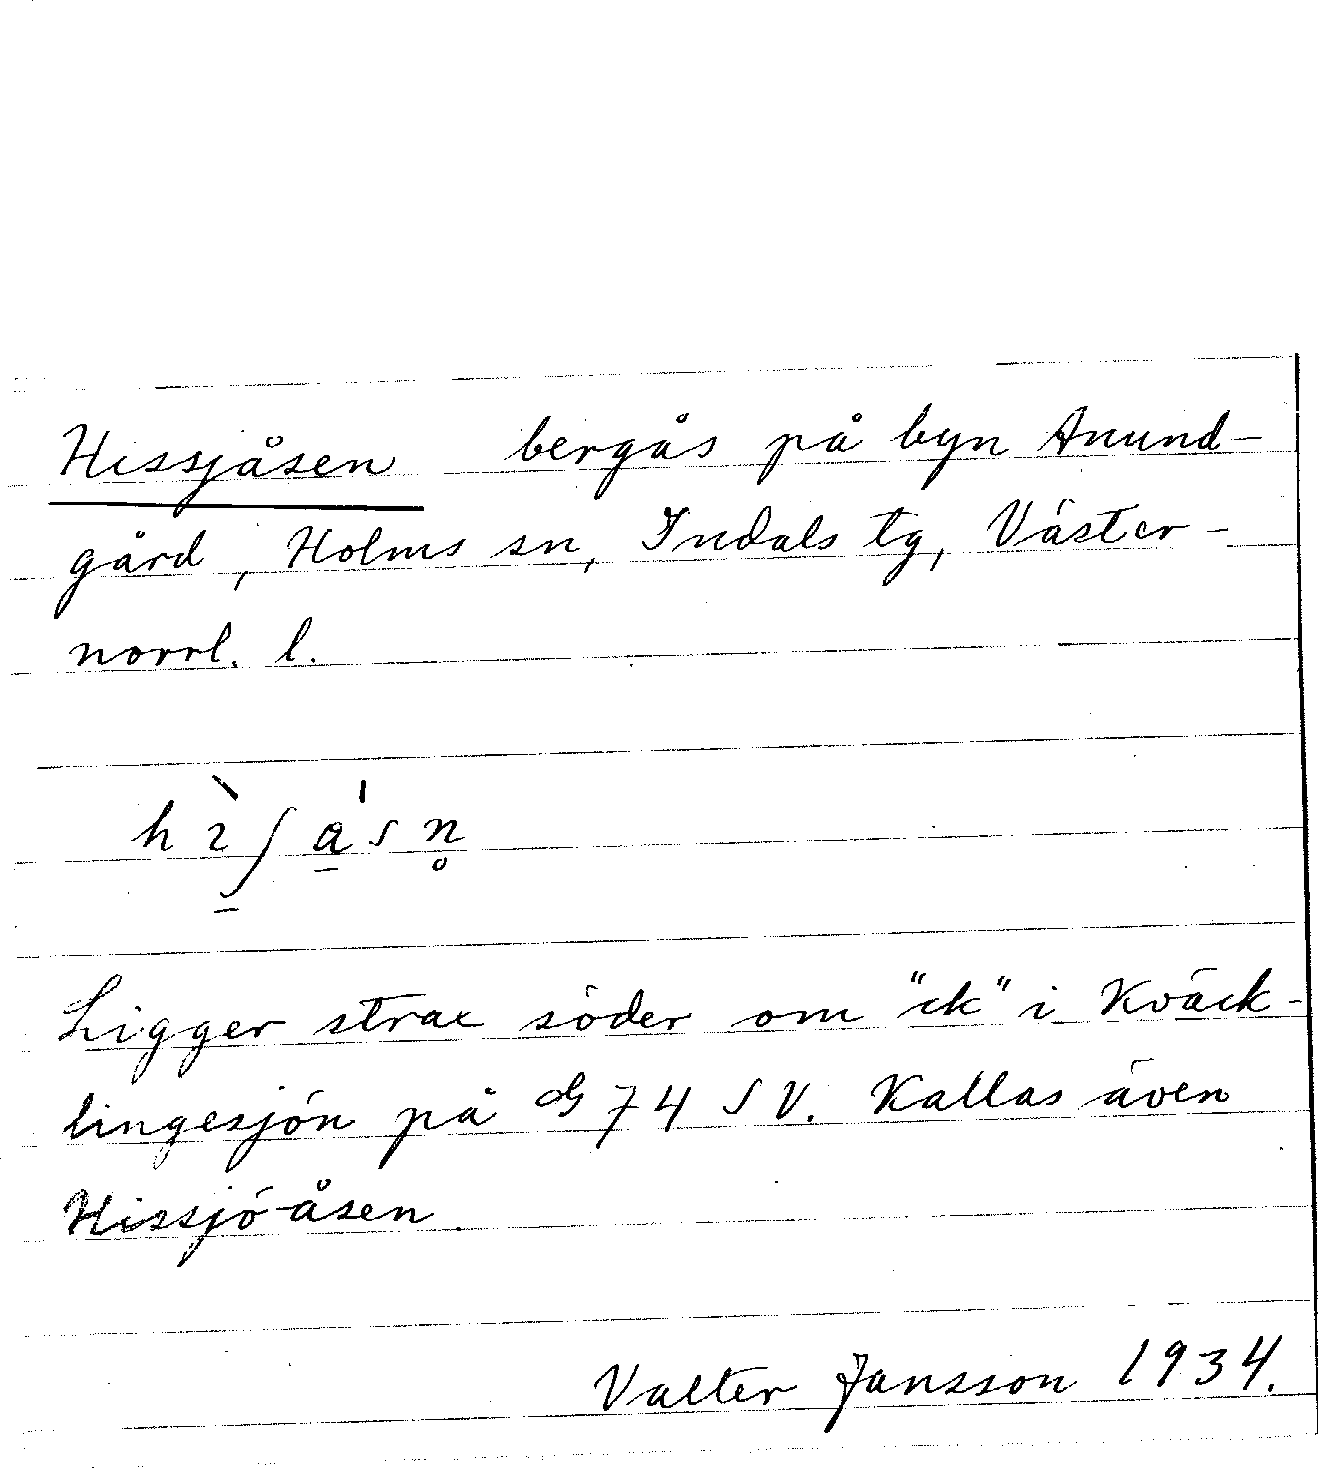 Hissjåsen bergås på byn Anund-
gård, Holms sn, Indals tg, Väster-
norrl. l.
Ligger strax söder om "ck" i Kväck-
lingesjön på G 74 SV. Kallas även
Hissjö-åsen.
Valter Jansson 1934.